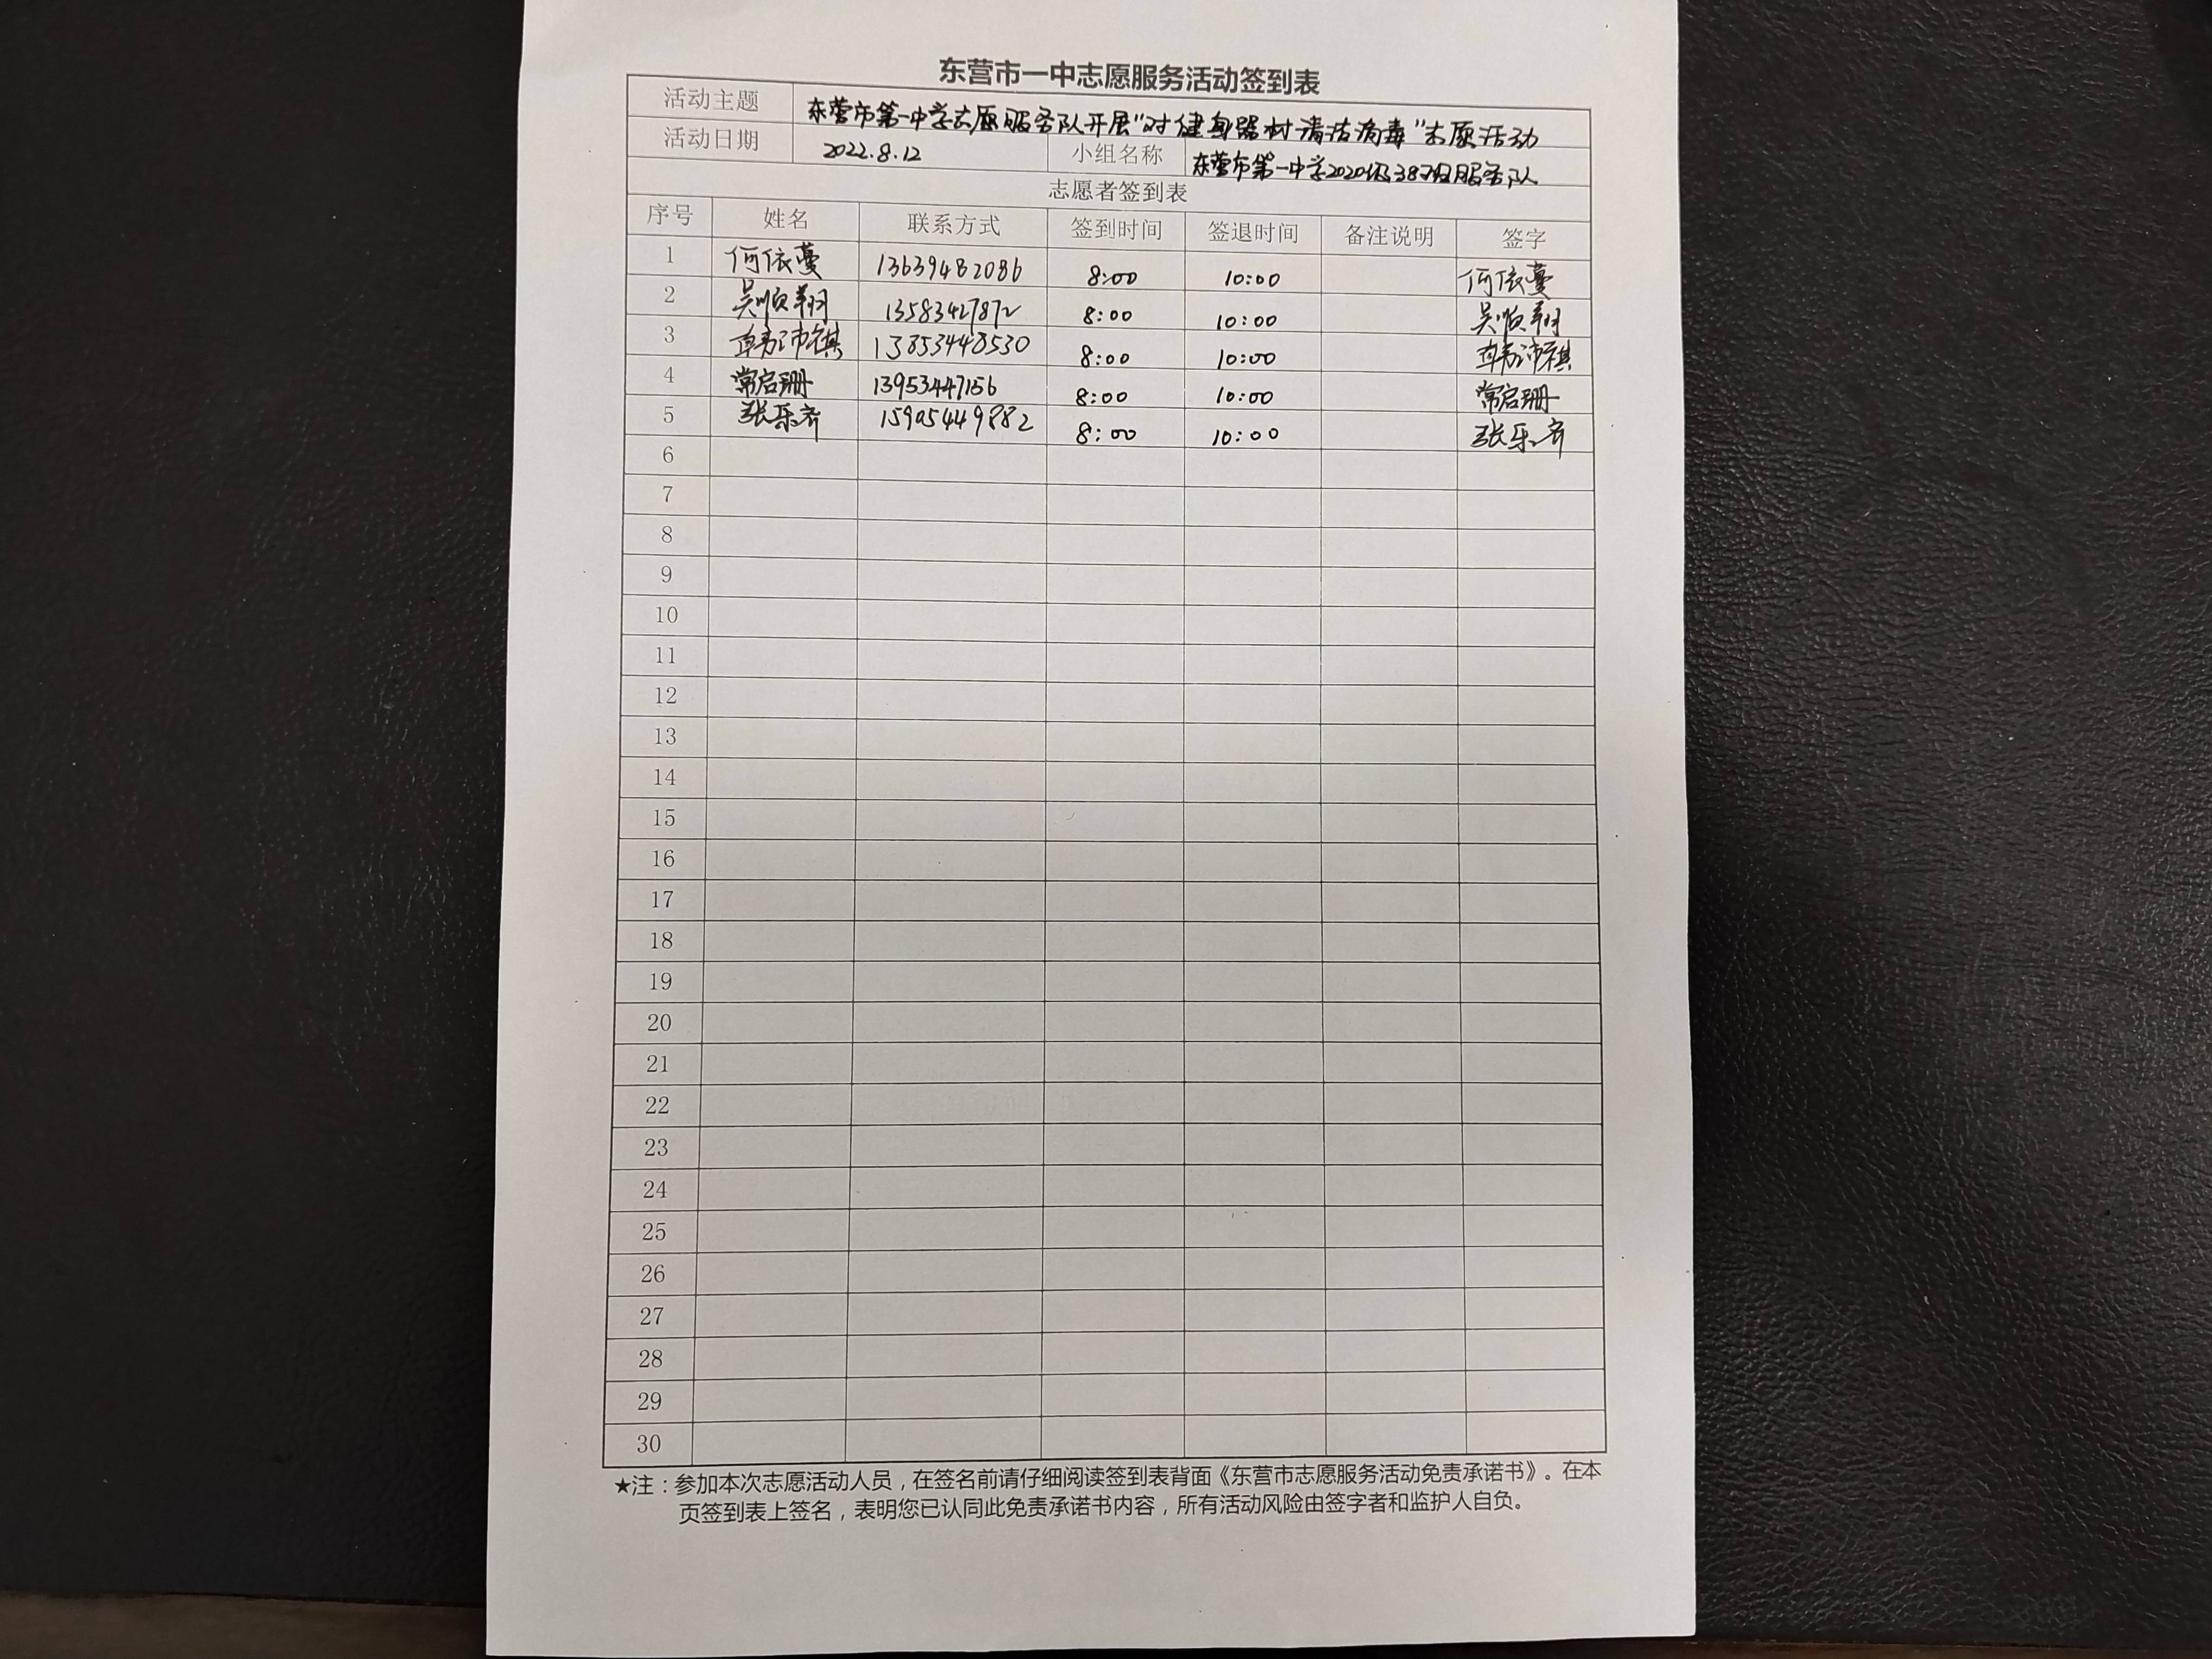 东营市一中志愿服务活动签到表
活动主题 东营市第一中学志愿服务队开展"对健身器材清洁病毒"志愿活动
活动日期 2022.8.12 小组名称 东营市第一中学2020级38班服务队
志愿者签到表
序号 姓名 联系方式 签到时间 签退时间 备注说明 签字
1 何依蔓 13639482086 8:00 10:00 何依蔓
2 吴顺翔 13583427872 8:00 10:00 吴顺翔
3 13853448530 8:00 10:00
4 常启珊 13953447156 8:00 10:00 常启珊
5 张乐齐 15905449882 8:00 10:00 张乐齐
6
7
8
9
10
11
12
13
14
15
16
17
18
19
20
21
22
23
24
25
26
27
28
29
30
★注：参加本次志愿活动人员，在签名前请仔细阅读签到表背面《东营市志愿服务活动免责承诺书》。在本
页签到表上签名，表明您已认同此免责承诺书内容，所有活动风险由签字者和监护人自负。